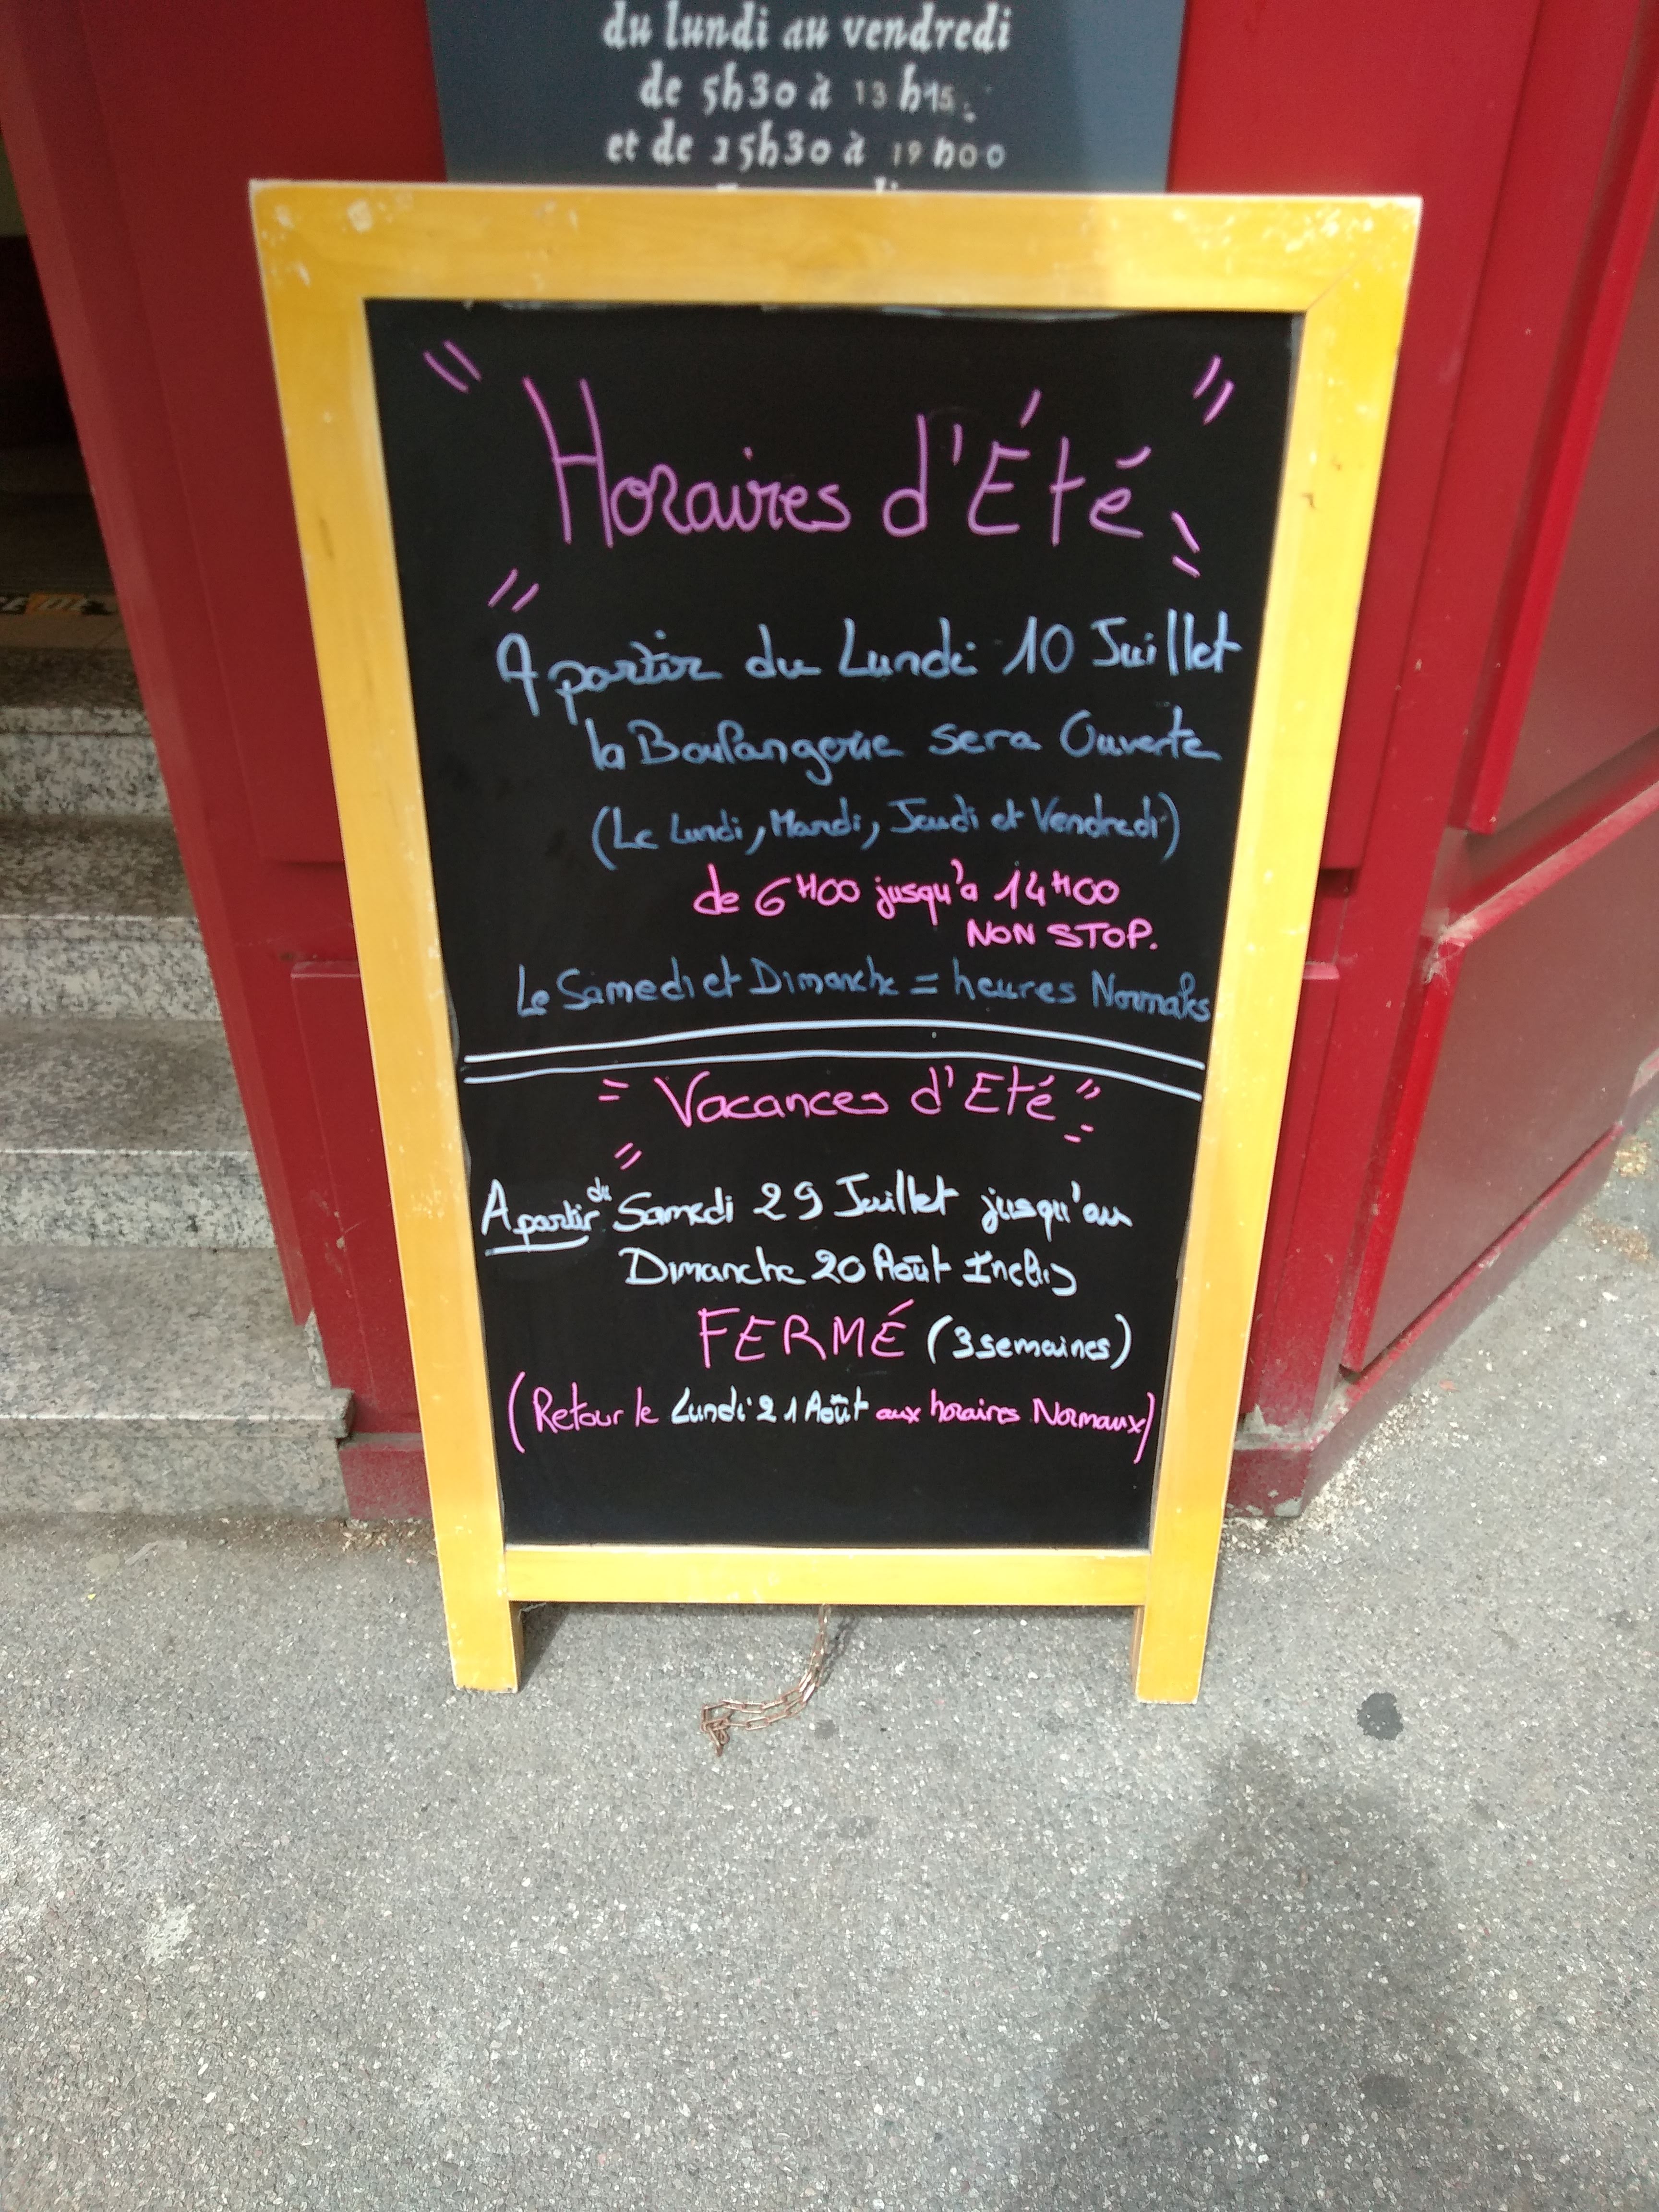 du lundi au vendredi
de 5h30 à 13h15
et de 15h30 à 19h00
Horaires d'Été
A partir du Lundi 10 Juillet
la Boulangerie sera Ouverte
(Le Lundi, Mardi, Jeudi et Vendredi)
de 6H00 jusqu'a 14H00
NON STOP.
Le Samedi et Dimanche = heures Normales
Vacances d'Eté
A partir du Samedi 29 Juillet jusqu'au
Dimanche 20 Août Inclus
FERMÉ (3 semaines)
(Retour le Lundi 21 Août aux horaires Normaux)